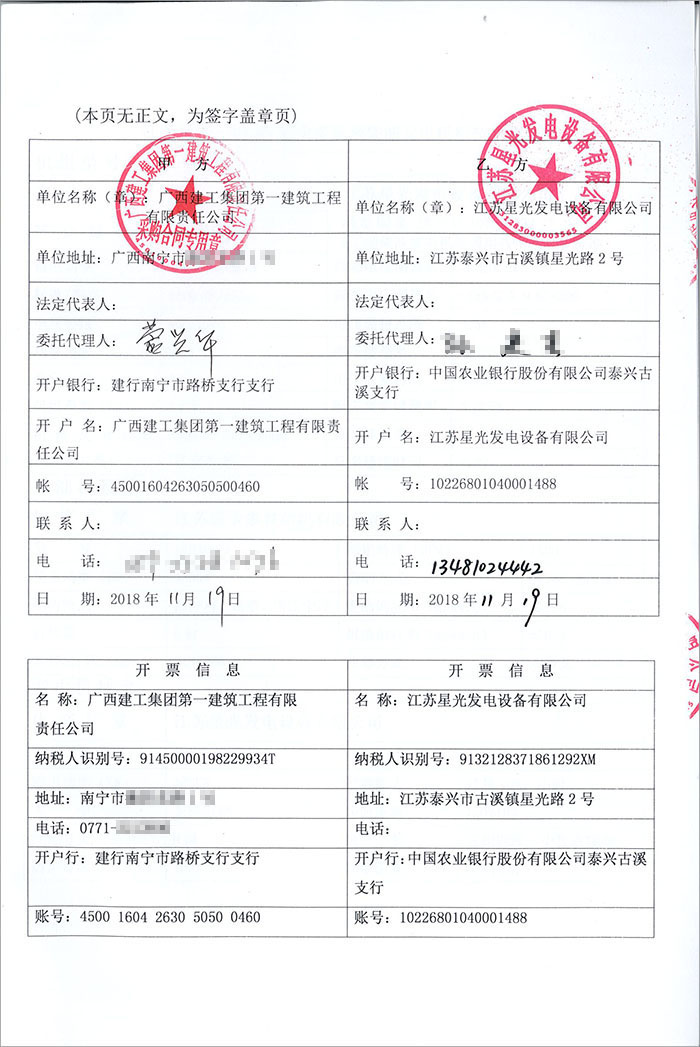 (本页无正文，为签字盖章页)
甲 方
乙 方
单位名称（章）：广西建工集团第一建筑工程
有限责任公司
单位名称（章）：江苏星光发电设备有限公司
广西建工集团第一建筑工程有限责任公司
采购合同专用章
江苏星光发电设备有限公司
3212830000003565
单位地址：广西南宁市
单位地址：江苏泰兴市古溪镇星光路2号
法定代表人：
法定代表人：
委托代理人：
委托代理人：
开户银行：建行南宁市路桥支行支行
开户银行：中国农业银行股份有限公司泰兴古
溪支行
开 户 名：广西建工集团第一建筑工程有限责
任公司
开 户 名：江苏星光发电设备有限公司
帐 号：45001604263050500460
帐 号：10226801040001488
联 系 人：
联 系 人：
电 话：
电 话：13481024442
日 期：2018年11月19日
日 期：2018年11月19日
开 票 信 息
开 票 信 息
名 称：广西建工集团第一建筑工程有限
责任公司
名 称：江苏星光发电设备有限公司
纳税人识别号：91450000198229934T
纳税人识别号：9132128371861292XM
地址：南宁市
地址：江苏泰兴市古溪镇星光路2号
电话：0771-
电话：
开户行：建行南宁市路桥支行支行
开户行：中国农业银行股份有限公司泰兴古溪
支行
账号：4500 1604 2630 5050 0460
账号：10226801040001488